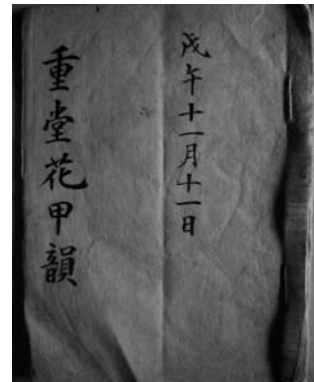 戊午十一月十一日
重堂花甲韻